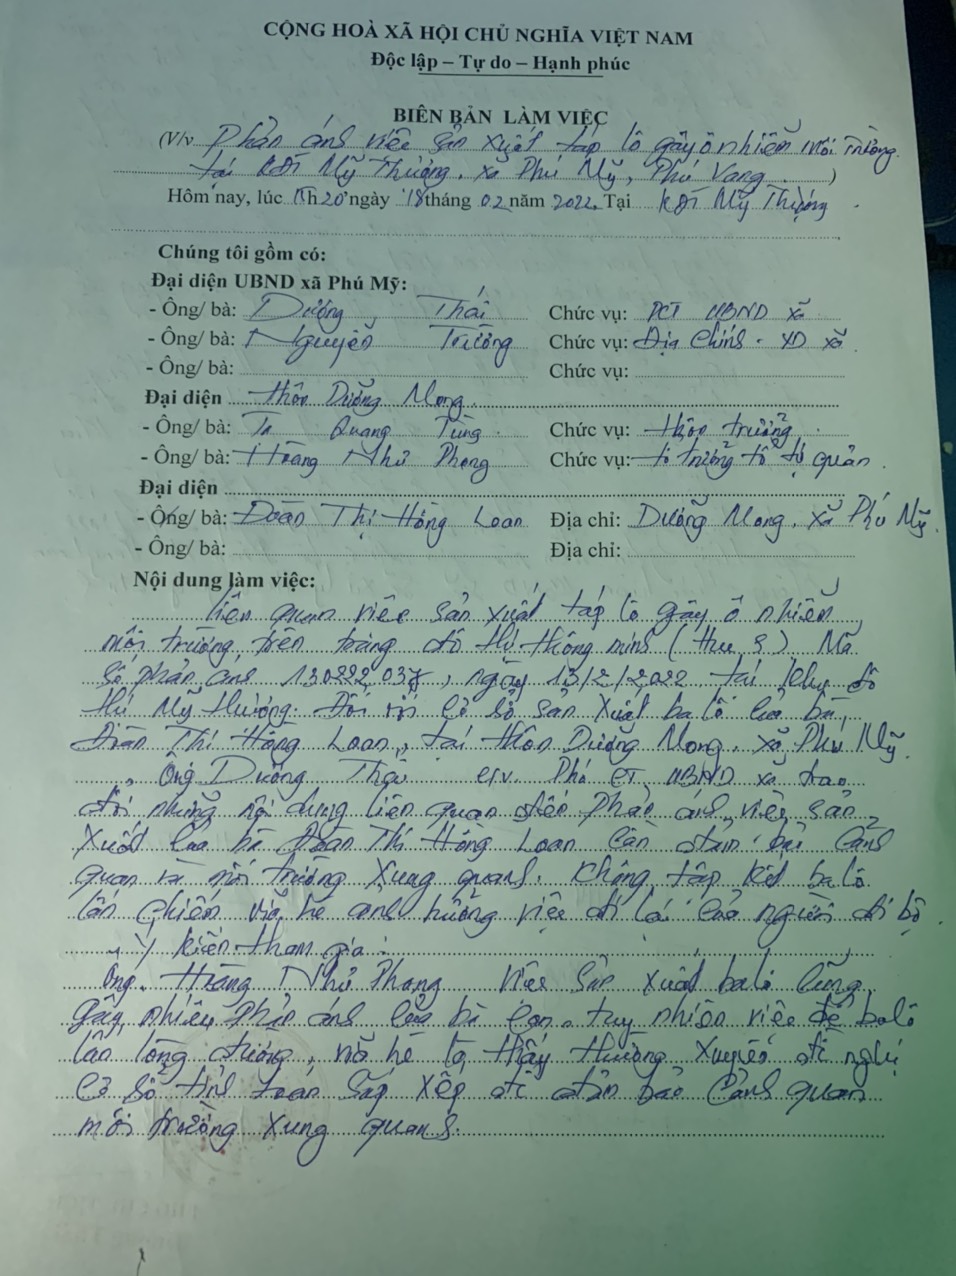 CỘNG HOÀ XÃ HỘI CHỦ NGHĨA VIỆT NAM
Độc lập – Tự do – Hạnh phúc
BIÊN BẢN LÀM VIỆC
(V/v Phản ánh việc sản xuất táp lô gây ô nhiễm môi trường
tại KĐT Mỹ Thượng, xã Phú Mỹ, Phú Vang )
Hôm nay, lúc h20 ngày 18 tháng 02 năm 2022. Tại KĐT Mỹ Thượng.
Chúng tôi gồm có:
Đại diện UBND xã Phú Mỹ:
- Ông/ bà: Dương Thái Chức vụ: PCT UBND xã
- Ông/ bà: Nguyễn Trường Chức vụ: Địa Chính - XD xã
- Ông/ bà: Chức vụ:
Đại diện thôn Dưỡng Mong
- Ông/ bà: Quang Tùng Chức vụ: thôn trưởng
- Ông/ bà: Hoàng Như Phong Chức vụ: tổ trưởng tổ tự quản
Đại diện
- Ông/ bà: Đoàn Thị Hồng Loan Địa chỉ: Dưỡng Mong, xã Phú Mỹ.
- Ông/ bà: Địa chỉ:
Nội dung làm việc:
Liên quan việc sản xuất táp lô gây ô nhiễm
môi trường, trên trang đô thị thông minh (Hue S) Mã
số phản ánh , ngày 13/2/2022 tại khu đô
thị Mỹ Thượng. Đối với cơ sở sản xuất bà lô của bà,
Đoàn Thị Hồng Loan, tại thôn Dưỡng Mong, xã Phú Mỹ
Ông Dương Thái Phó CT UBND xã trao
đổi những nội dung liên quan đến phản ánh, việc sản
xuất của bà Đoàn Thị Hồng Loan cần đảm bảo cảnh
quan và môi trường xung quanh. Không tập kết bà lô
lấn chiếm vỉa hè ảnh hưởng việc đi lại của người đi bộ.
Ý kiến tham gia:
Ông. Hoàng Như Phong việc sản xuất ba lô cũng
nhiều phản ánh của bà con, tuy nhiên việc để ba lô
lấn lòng đường, thấy thường xuyên đề nghị
cơ sở tính toán sắp xếp để đảm bảo cảnh quan
môi trường xung quanh.